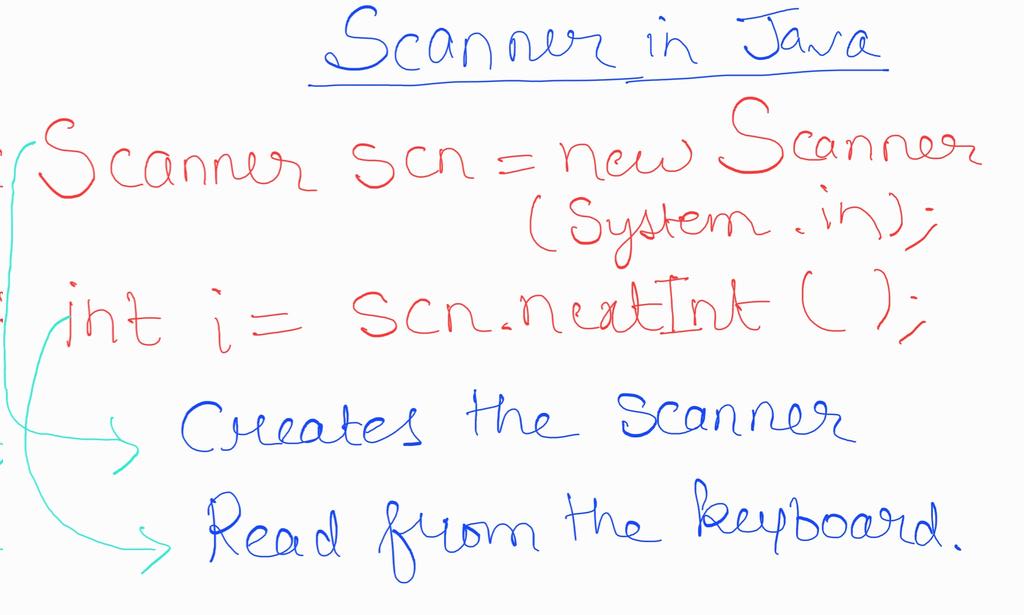 Scanner in Java
Scanner scn = new Scanner
(System.in);
int i = scn.nextInt();
Creates the Scanner
Read from the keyboard.